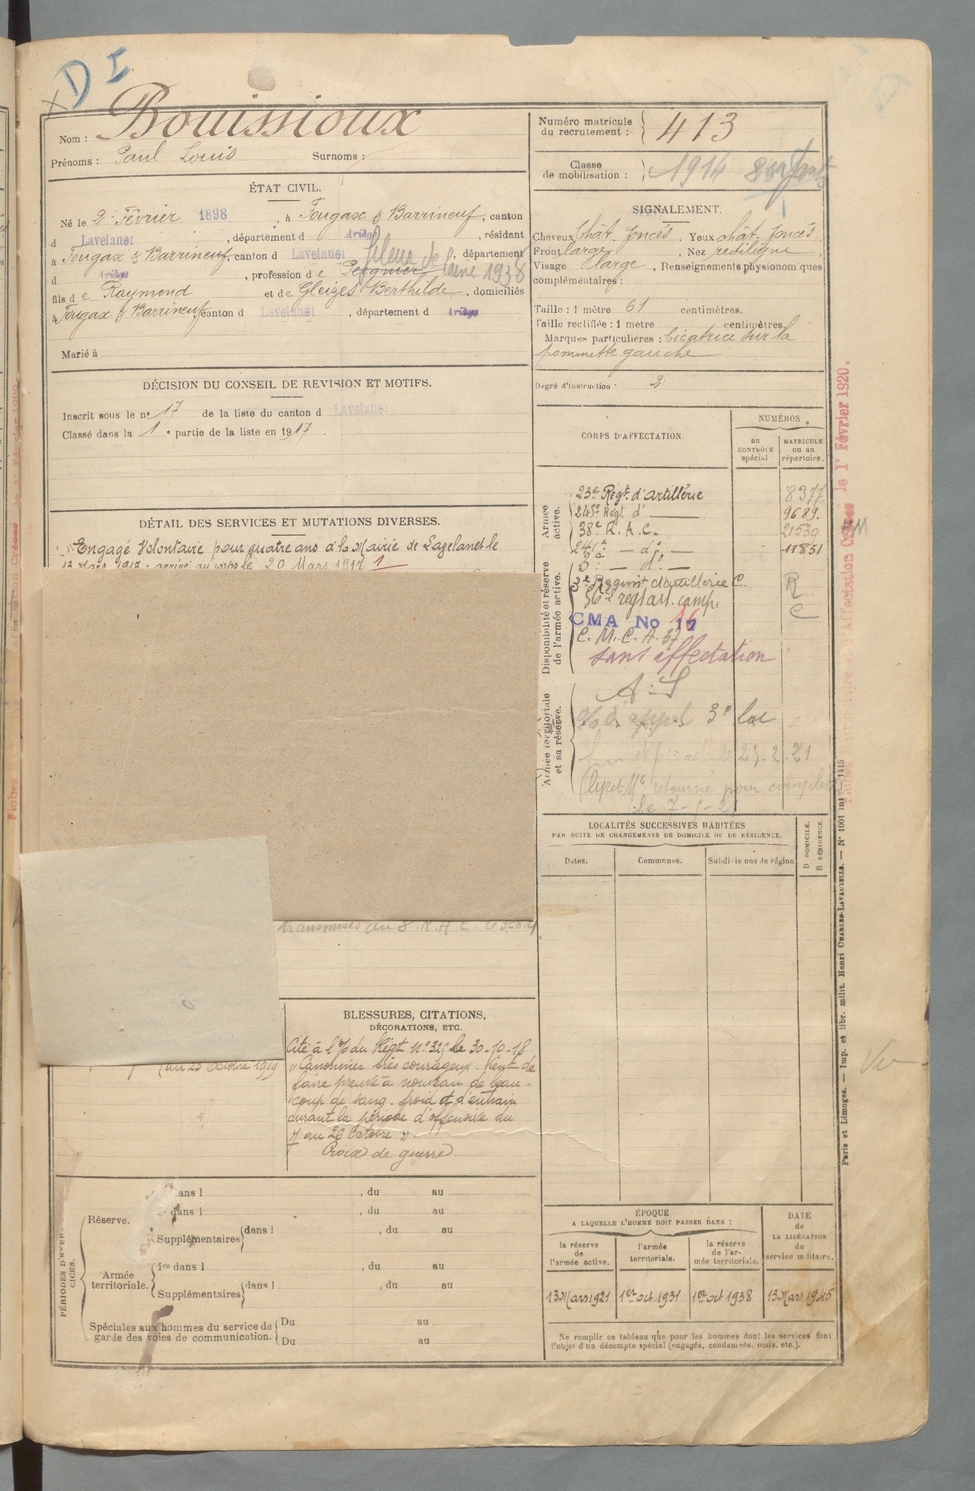 D I
Nom : Bouissioux
Prénoms : Paul Louis Surnoms :
Numéro matricule du recrutement : 413
Classe de mobilisation : 1914
ÉTAT CIVIL.
Né le 2 Février 1898, à Fougax & Barrineuf, canton
d Lavelanet, département d Ariège, résidant
à Fougax & Barrineuf, canton d Lavelanet, département
d Ariège, profession de Peignier fileur de laine 1938
fils de Raymond et de Gleizes Berthilde, domiciliés
à Fougax & Barrineuf canton d Lavelanet, département d Ariège
Marié à
SIGNALEMENT.
Cheveux chât. foncés. Yeux chât. foncés
Front large, Nez rectiligne
Visage large, Renseignements physionomiques
complémentaires :
Taille : 1 mètre 61 centimètres.
Taille rectifiée : 1 mètre centimètres
Marques particulières : Cicatrice sur la
pommette gauche
Degré d'instruction : 2
DÉCISION DU CONSEIL DE REVISION ET MOTIFS.
Inscrit sous le n° 17 de la liste du canton d Lavelanet
Classé dans la 1e partie de la liste en 1917
DÉTAIL DES SERVICES ET MUTATIONS DIVERSES.
Engagé Volontaire pour quatre ans à la Mairie de Lavelanet le
13 Mars 1917 : arrivé au corps le 20 Mars 1917
transmises au
au 23 Octobre 1919
CORPS D'AFFECTATION.
NUMÉROS
au contrôle spécial
MATRICULE ou au répertoire.
Armée active.
23e Régt. d'Artillerie 8377
245e Régt. d° 9689
38e R. A. C. 21530
241e — d° — 11851
Disponibilité et réserve de l'armée active.
5e — d° —
3e Régiment d'artillerie C. R
56e rég. art. camp. C
CMA No 17 16
C. M. C. A. 37
sans affectation
Armée territoriale et sa réserve.
A. S
LOCALITÉS SUCCESSIVES HABITÉES
PAR SUITE DE CHANGEMENTS DE DOMICILE OU DE RÉSIDENCE.
Dates.
Communes.
Subdivisions de région
D DOMICILE.
R RÉSIDENCE.
BLESSURES, CITATIONS,
DÉCORATIONS, ETC.
Cité à l'O du Régt N° 325 le 30-10-18
« Canonnier très courageux. Vient de
faire preuve à nouveau de beau-
coup de sang-froid et d'entrain
durant la période d'offensive du
7 au 26 Octobre »
Croix de guerre
PÉRIODES D'EXERCICES.
Réserve.
dans l , du au
dans l , du au
Supplémentaires dans l , du au
Armée territoriale.
1re dans l , du au
Supplémentaires dans l , du au
Spéciales aux hommes du service de
garde des voies de communication.
Du au
Du au
ÉPOQUE
A LAQUELLE L'HOMME DOIT PASSER DANS :
la réserve de l'armée active.
l'armée territoriale.
la réserve de l'armée territoriale.
DATE de LA LIBÉRATION du service militaire.
13 Mars 1921
1er oct. 1931
1er oct 1938
13 Mars 1945
Ne remplir ce tableau que pour les hommes dont les services font
l'objet d'un décompte spécial (engagés, condamnés, omis, etc.).
Paris et Limoges. — Imp. et libr. milit. Henri CHARLES-LAVAUZELLE. — N° 1001